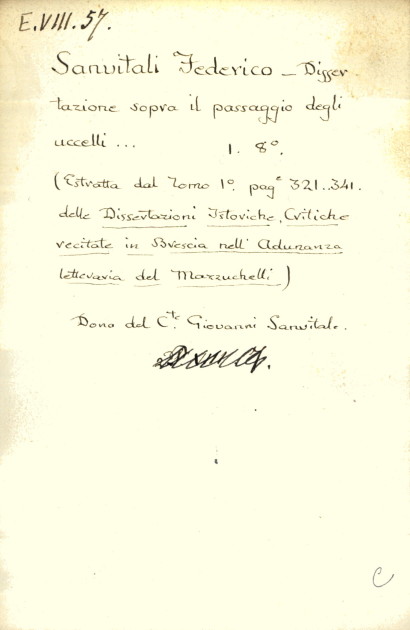 E.VIII.57.
Sanvitali Federico – Disser
tazione sopra il passaggio degli
uccelli ...
1. 8º.
(Estratta dal Tomo 1º. pagᵉ 321..341.
delle Dissertazioni Istoriche, Critiche
recitate in Brescia nell' Adunanza
letteraria del Mazzuchelli)
Dono del C.ᵗᵉ Giovanni Sanvitale.
C